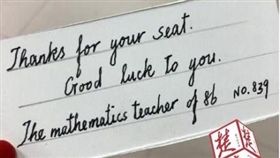 Thanks for your seat.
Good luck to you.
The mathematics teacher of 86 NO.839